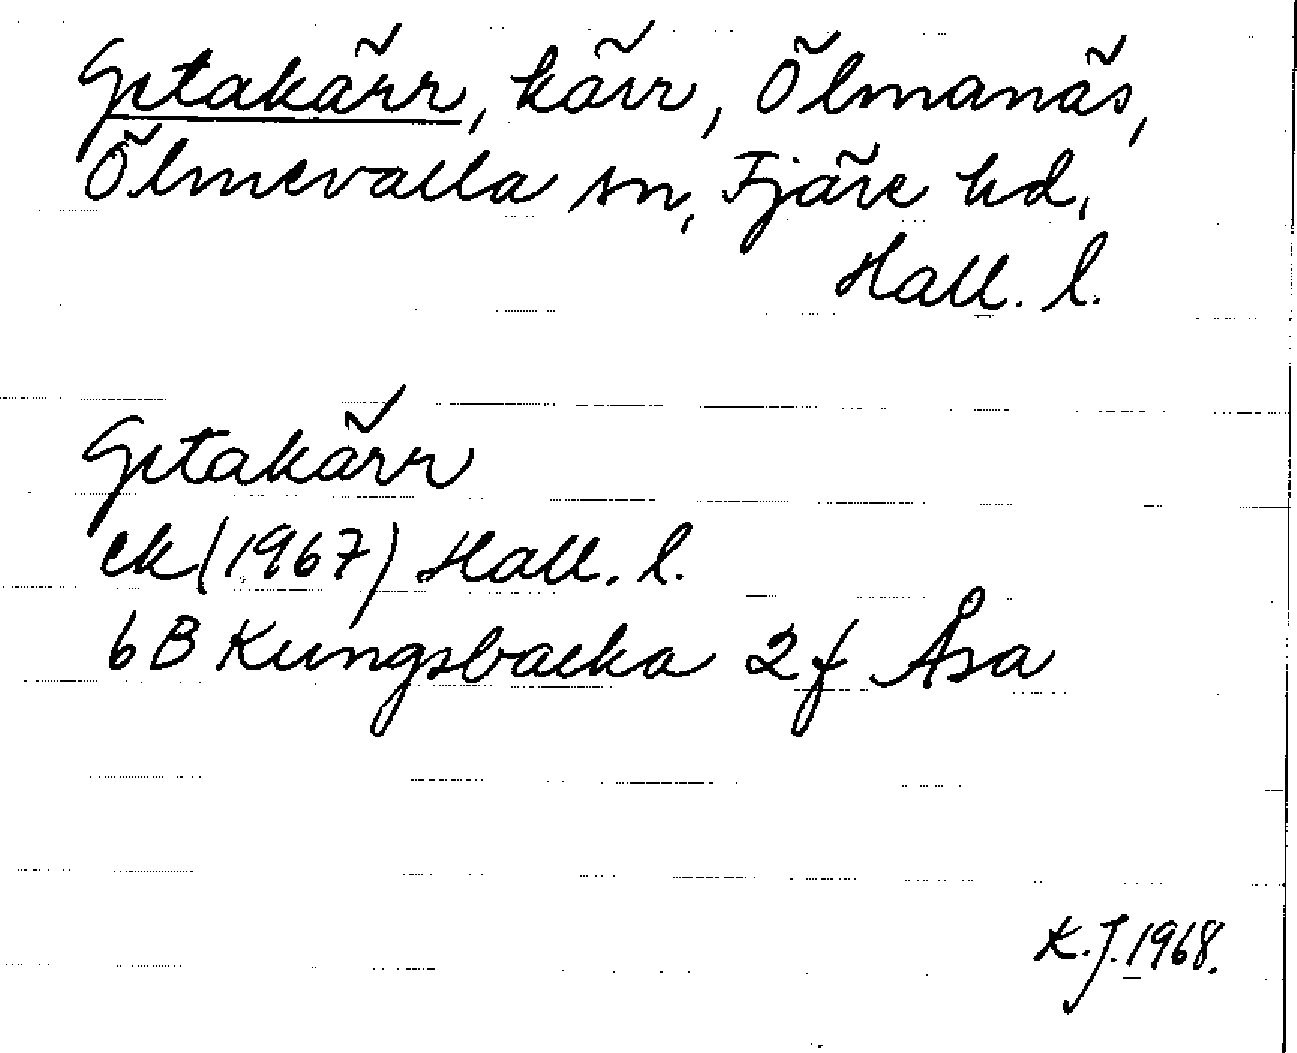 Getakärr, kärr, Ölmanäs,
Ölmevalla sn, Fjäre hd,
Hall. l.
Getakärr
ek (1967) Hall. l.
6B Kungsbacka 2f Åsa
K.J. 1968.